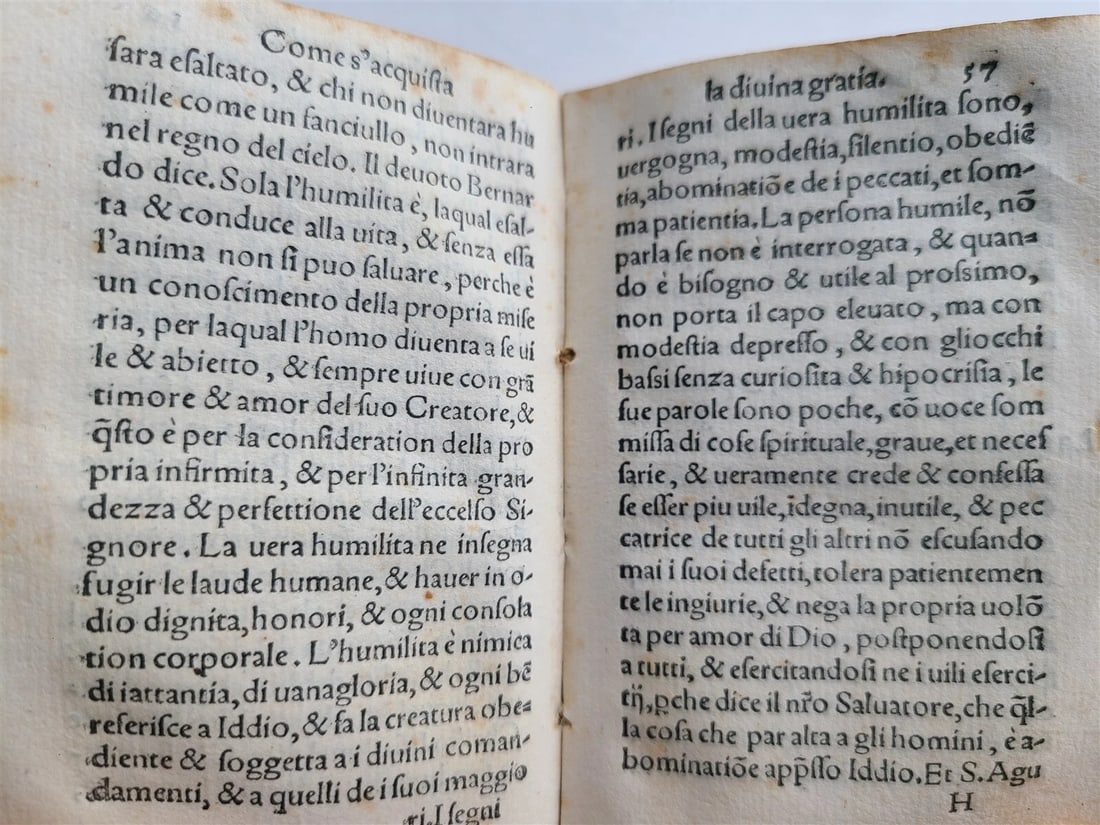 Come s'acquiſta
ſara eſaltato, & chi non diuentara hu
mile come un fanciullo, non intrara
nel regno del cielo. Il deuoto Bernar
do dice. Sola l'humilita è, laqual eſal-
ta & conduce alla uita, & ſenza eſſa
l'anima non ſi puo ſaluare, perche è
un conoſcimento della propria miſe
ria, per laqual l'homo diuenta a ſe ui
le & abietto, & ſempre uiue con grã
timore & amor del ſuo Creatore, &
q̃ſto è per la conſideration della pro
pria infirmita, & per l'infinita gran-
dezza & perfettione dell'eccelſo Si-
gnore. La uera humilita ne inſegna
fugir le laude humane, & hauer in o-
dio dignita, honori, & ogni conſola
tion corporale. L'humilita è nimica
di iattantia, di uanagloria, & ogni bẽ
referiſce a Iddio, & fa la creatura obe-
diente & ſoggetta a i diuini coman-
damenti, & a quelli de i ſuoi maggio
ri. I ſegni
la diuina gratia. 57
ri. I ſegni della uera humilita ſono,
uergogna, modeſtia, ſilentio, obediẽ
tia, abominatiõe de i peccati, et ſom-
ma patientia. La perſona humile, nõ
parla ſe non è interrogata, & quan-
do è biſogno & utile al proſsimo,
non porta il capo eleuato, ma con
modeſtia depreſſo, & con gliocchi
baſsi ſenza curioſita & hipocriſia, le
ſue parole ſono poche, cõ uoce ſom
miſſa di coſe ſpirituale, graue, et neceſ
ſarie, & ueramente crede & confeſſa
ſe eſſer piu uile, ĩdegna, inutile, & pec
catrice de tutti gli altri nõ eſcuſando
mai i ſuoi defetti, tolera patientemen
te le ingiurie, & nega la propria uolõ
ta per amor di Dio, poſtponendoſi
a tutti, & eſercitandoſi ne i uili eſerci-
tij, ꝑche dice il nr̃o Saluatore, che q̃l-
la coſa che par alta a gli homini, è a-
bominatiõe app̃ſſo Iddio. Et S. Agu
H